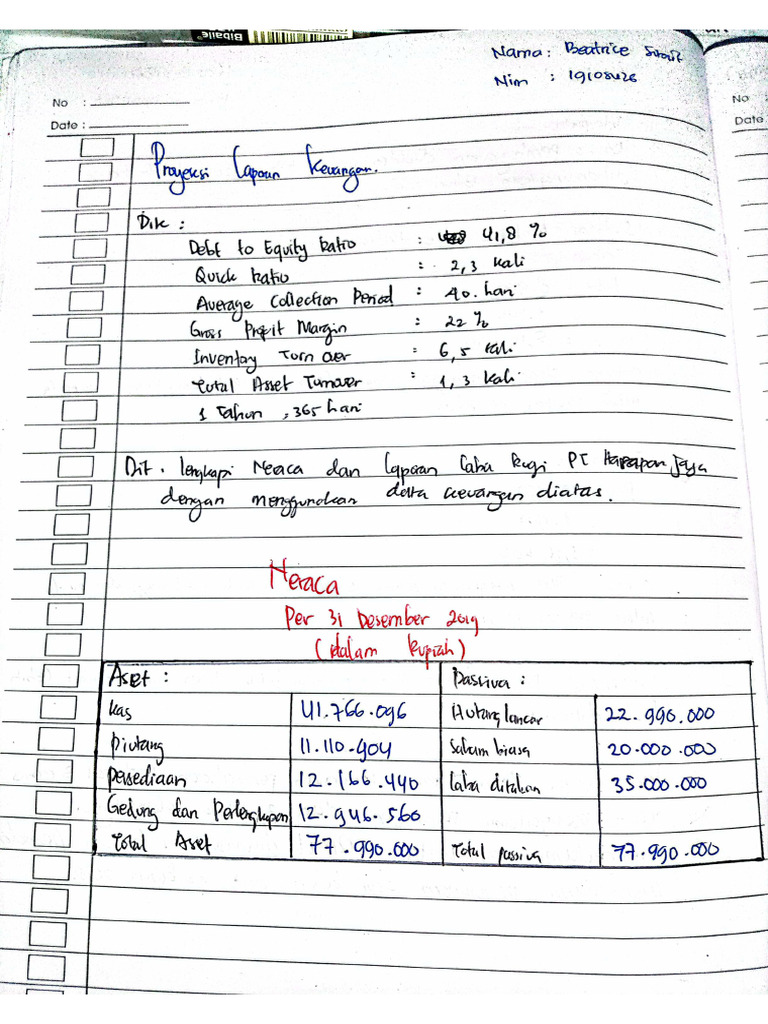 Nama : Beatrice
Nim :
No :
Date :
No :
Date
Proyeksi Laporan Keuangan.
Dik :
Debt to Equity Ratio : 41,8 %
Quick Ratio : 2,3 kali
Average Collection Period : 40. hari
Gross Profit Margin : 22 %
Inventory Turn over : 6,5 kali
Total Asset Turnover : 1,3 kali
1 Tahun , 365 hari
Dit . lengkapi Neraca dan laporan laba Rugi PT Harapan Jaya
dengan menggunakan data keuangan diatas.
Neraca
Per 31 Desember 2019
(dalam Rupiah)
Aset : Passiva :
Kas 41.766.096 Hutang lancar 22.990.000
Piutang 11.110.904 Saham biasa 20.000.000
Persediaan 12.166.440 Laba ditahan 35.000.000
Gedung dan Perlengkapan 12.946.560
Total Aset 77.990.000 Total passiva 77.990.000